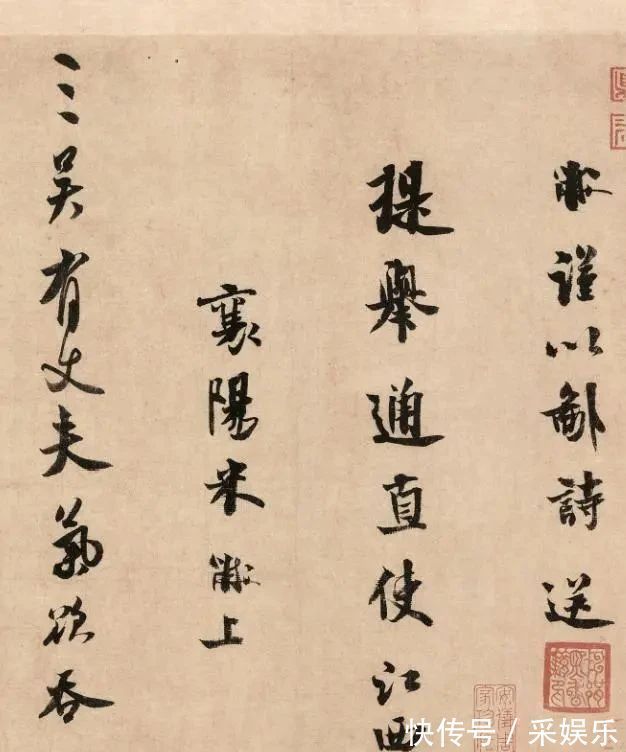 黻謹以鄙詩送
提舉通直使江西
襄陽米黻上
三吳有丈夫氣欲吞
快传号 / 采娱乐